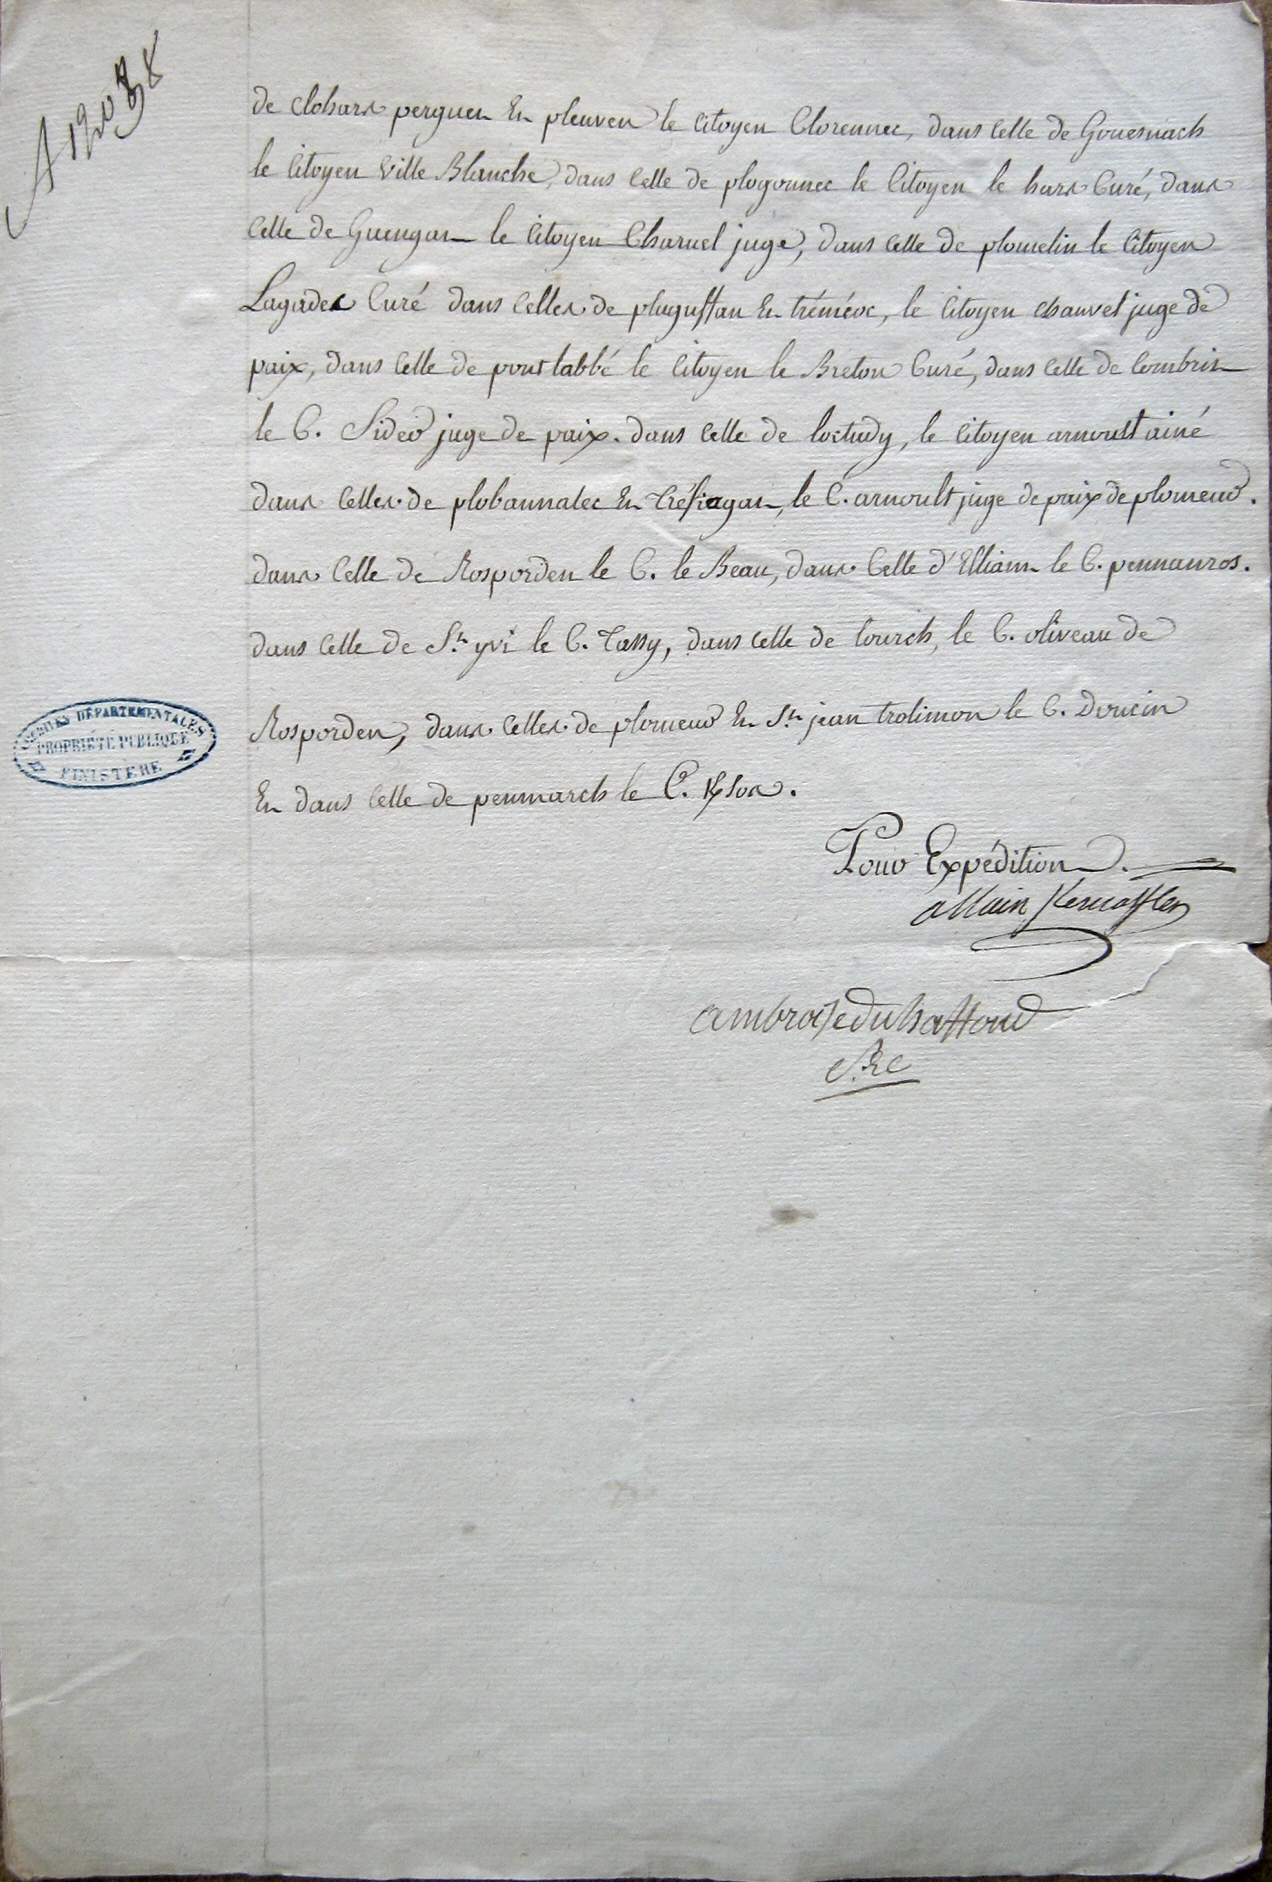 de clohars perguen Et pleuven le Citoyen Clorennec, dans Celle de Gouesnach
le Citoyen Ville Blanche, dans Celle de plogonnec le Citoyen le hars Curé, dans
Celle de Guengat le Citoyen Charuel juge, dans Celle de plomelin le Citoyen
Lagadec Curé dans Celles de pluguffan Et tréméoc, le Citoyen chauvel juge de
paix, dans Celle de pont labbé le Citoyen le Breton Curé, dans Celle de Combrit
le C. Sider juge de paix. dans Celle de loctudy, le Citoyen arnoult ainé
dans Celles de plobannalec Et Tréfiagat, le C. arnoult juge de paix de plomeur.
dans Celle de Rosporden le C. le Beau, dans Celle d'Elliant le C. pennanros.
dans Celle de St. yvi le C. Tassy, dans Celle de tourch, le C. oliveau de
Rosporden, dans Celles de plomeur Et St. jean trolimon le C. Doucin
Et dans Celle de penmarch le C.
Pour Expédition.
allain
ambroise du haffond
ARCHIVES DÉPARTEMENTALES
PROPRIÉTÉ PUBLIQUE
FINISTÈRE